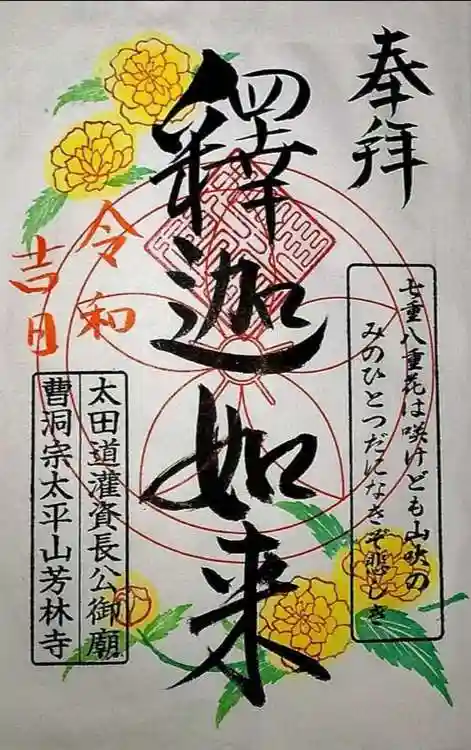 奉拝
七重八重花は咲けども山吹の
みのひとつだになきぞ悲しき
釋迦如来
令和
吉日
太田道灌資長公御廟
曹洞宗太平山芳林寺